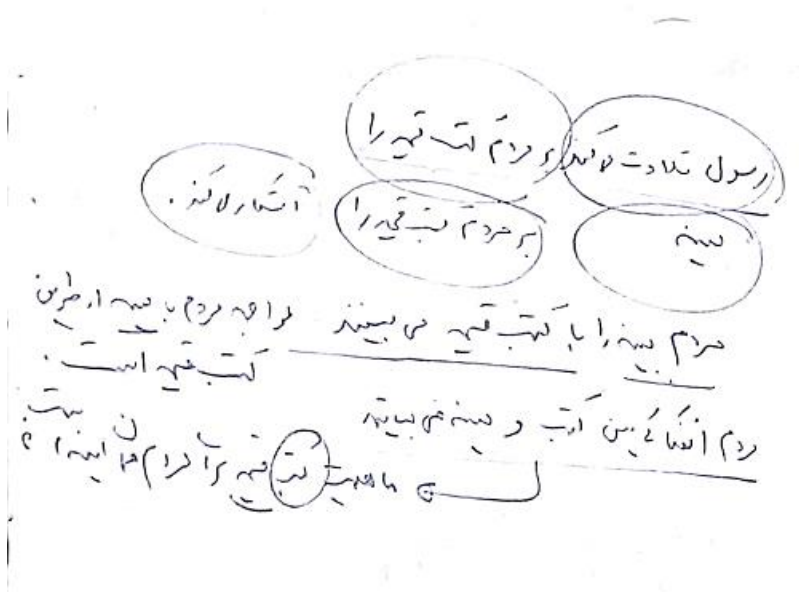 رسول تلاوت می‌کند بر مردم کتب قیمه را
بینه بر مردم کتب قیمه را آشکار می‌کند.
مردم بینه را با کتب قیمه می‌بینند مواجهه مردم با بینه از طریق
کتب قیمه است.
مردم انفکاکی بین کتب و بینه نمی‌یابند
ماهیت کتب قیمه برای مردم